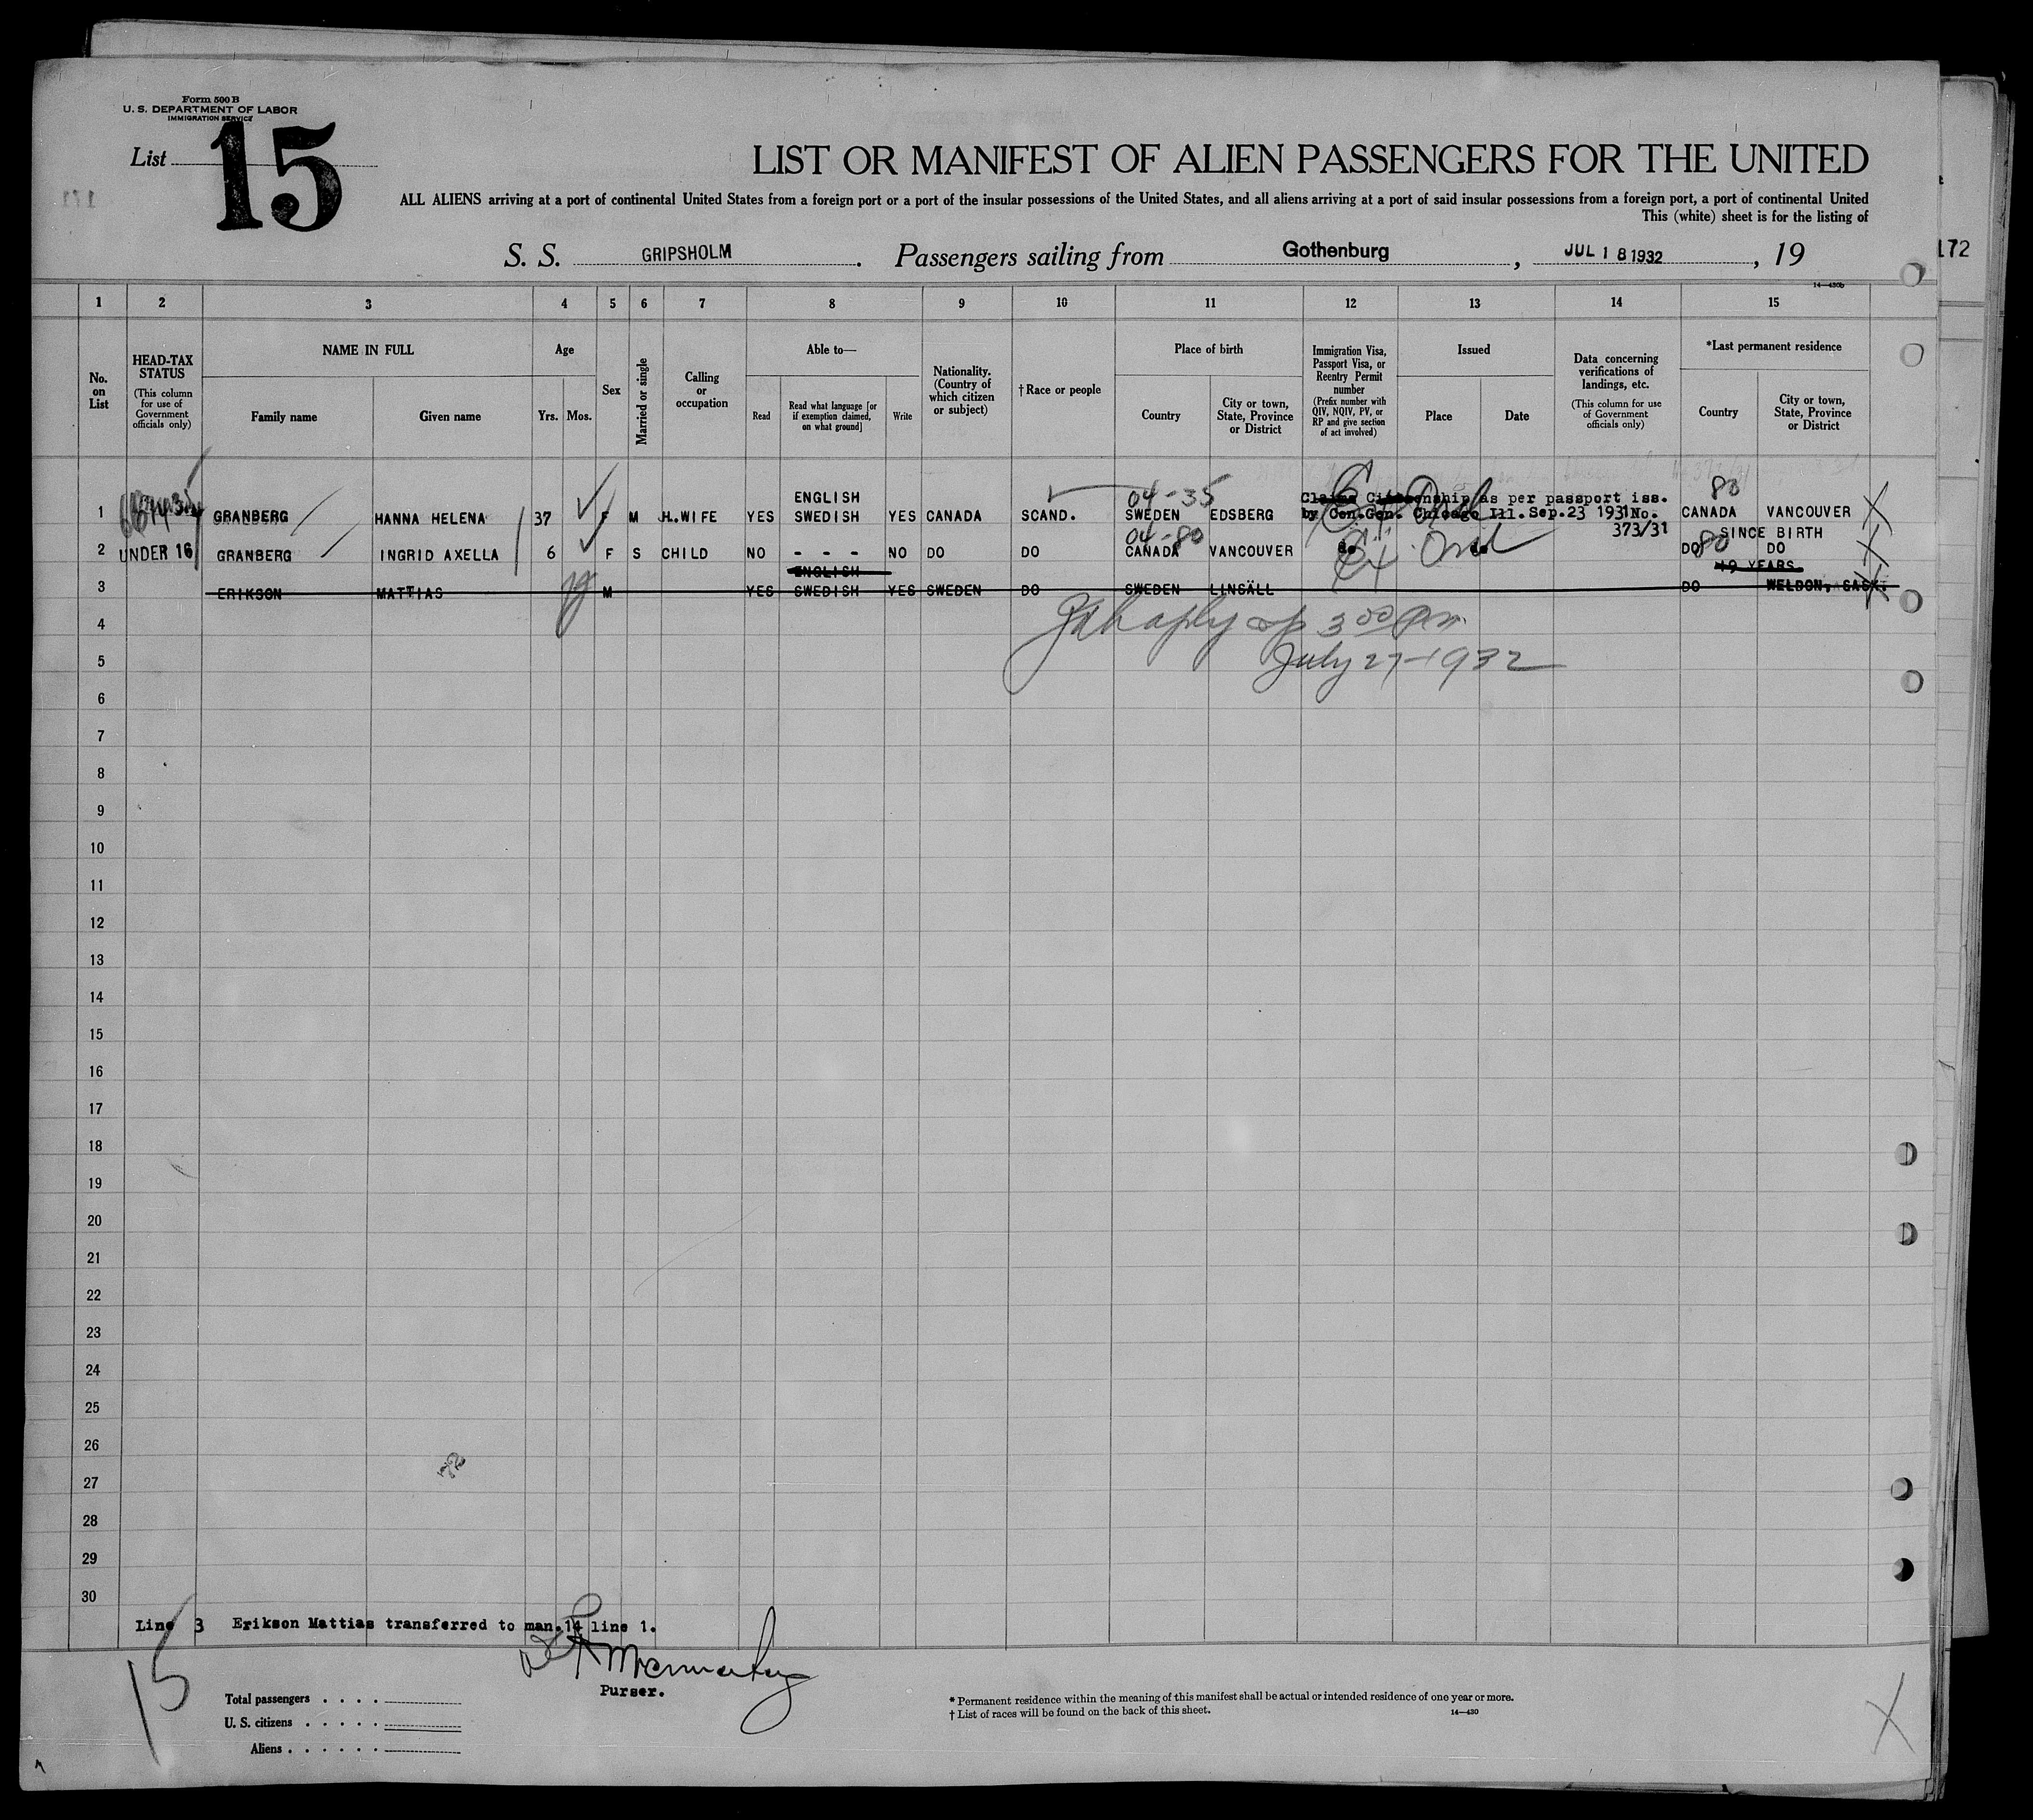 Form 500 B
U. S. DEPARTMENT OF LABOR
IMMIGRATION SERVICE
List 15
LIST OR MANIFEST OF ALIEN PASSENGERS FOR THE UNITED
ALL ALIENS arriving at a port of continental United States from a foreign port or a port of the insular possessions of the United States, and all aliens arriving at a port of said insular possessions from a foreign port, a port of continental United
This (white) sheet is for the listing of
S. S. GRIPSHOLM. Passengers sailing from Gothenburg, JUL 18 1932, 19
172
14—430b
1 2 3 4 5 6 7 8 9 10 11 12 13 14 15
No. on List
HEAD-TAX STATUS
(This column for use of Government officials only)
NAME IN FULL
Family name
Given name
Age
Yrs. Mos.
Sex
Married or single
Calling or occupation
Able to—
Read
Read what language [or if exemption claimed, on what ground]
Write
Nationality. (Country of which citizen or subject)
† Race or people
Place of birth
Country
City or town, State, Province or District
Immigration Visa, Passport Visa, or Reentry Permit number
(Prefix number with QIV, NQIV, PV, or RP and give section of act involved)
Issued
Place
Date
Data concerning verifications of landings, etc.
(This column for use of Government officials only)
*Last permanent residence
Country
City or town, State, Province or District
ENGLISH 04-35 Claims Citizenship as per passport iss. 80
1 GRANBERG HANNA HELENA 37 F M H.WIFE YES SWEDISH YES CANADA SCAND. SWEDEN EDSBERG by Con.Gen. Chicago Ill. Sep.23 1931 No. CANADA VANCOUVER
04-80 373/31 SINCE BIRTH
2 UNDER 16 GRANBERG INGRID AXELLA 6 F S CHILD NO - - - NO DO DO CANADA VANCOUVER do do DO 80 DO
ENGLISH 19 YEARS
3 ERIKSON MATTIAS M YES SWEDISH YES SWEDEN DO SWEDEN LINSÄLL DO WELDON, SASK.
4
3 00 Pm
5
July 27-1932
6
7
8
9
10
11
12
13
14
15
16
17
18
19
20
21
22
23
24
25
26
27
28
29
30
Line 3 Erikson Mattias transferred to man.14 line 1.
15
Purser.
Total passengers . . . .
U. S. citizens . . . . .
Aliens . . . . . .
* Permanent residence within the meaning of this manifest shall be actual or intended residence of one year or more.
† List of races will be found on the back of this sheet.
14—430